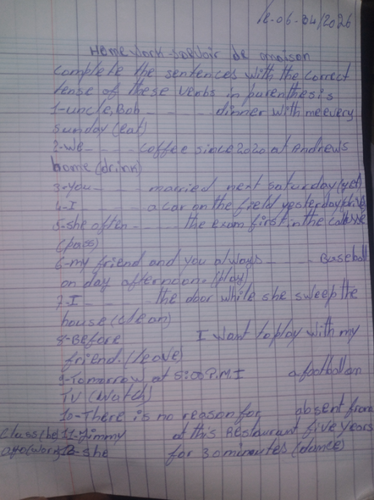 le.06-04/2026
Homework-Devoir de maison
complete the sentences with the correct
tense of these verbs in parenthesis
1-uncle, Bob ........ dinner with me every
sunday (eat)
2-we ........ coffee since 2020 at Andrew's
home (drink)
3-You ........ married next saturday (get)
4-I ........ a car on the field yesterday
5-she often ........ the exam first in the
(pass)
6-my friend and you always ........ Baseball
on day afternoon. (play)
7-I ........ the door while she sweep the
house (clean)
8-Before I want to play with my
friend. (leave)
9-Tomorrow at 5:00 P.M I a football on
TV (watch)
10-There is no reason for absent from
class (be) 11-Jimmy at this Restaurant five years
ago (work) 12-she for 30 minutes (dance)